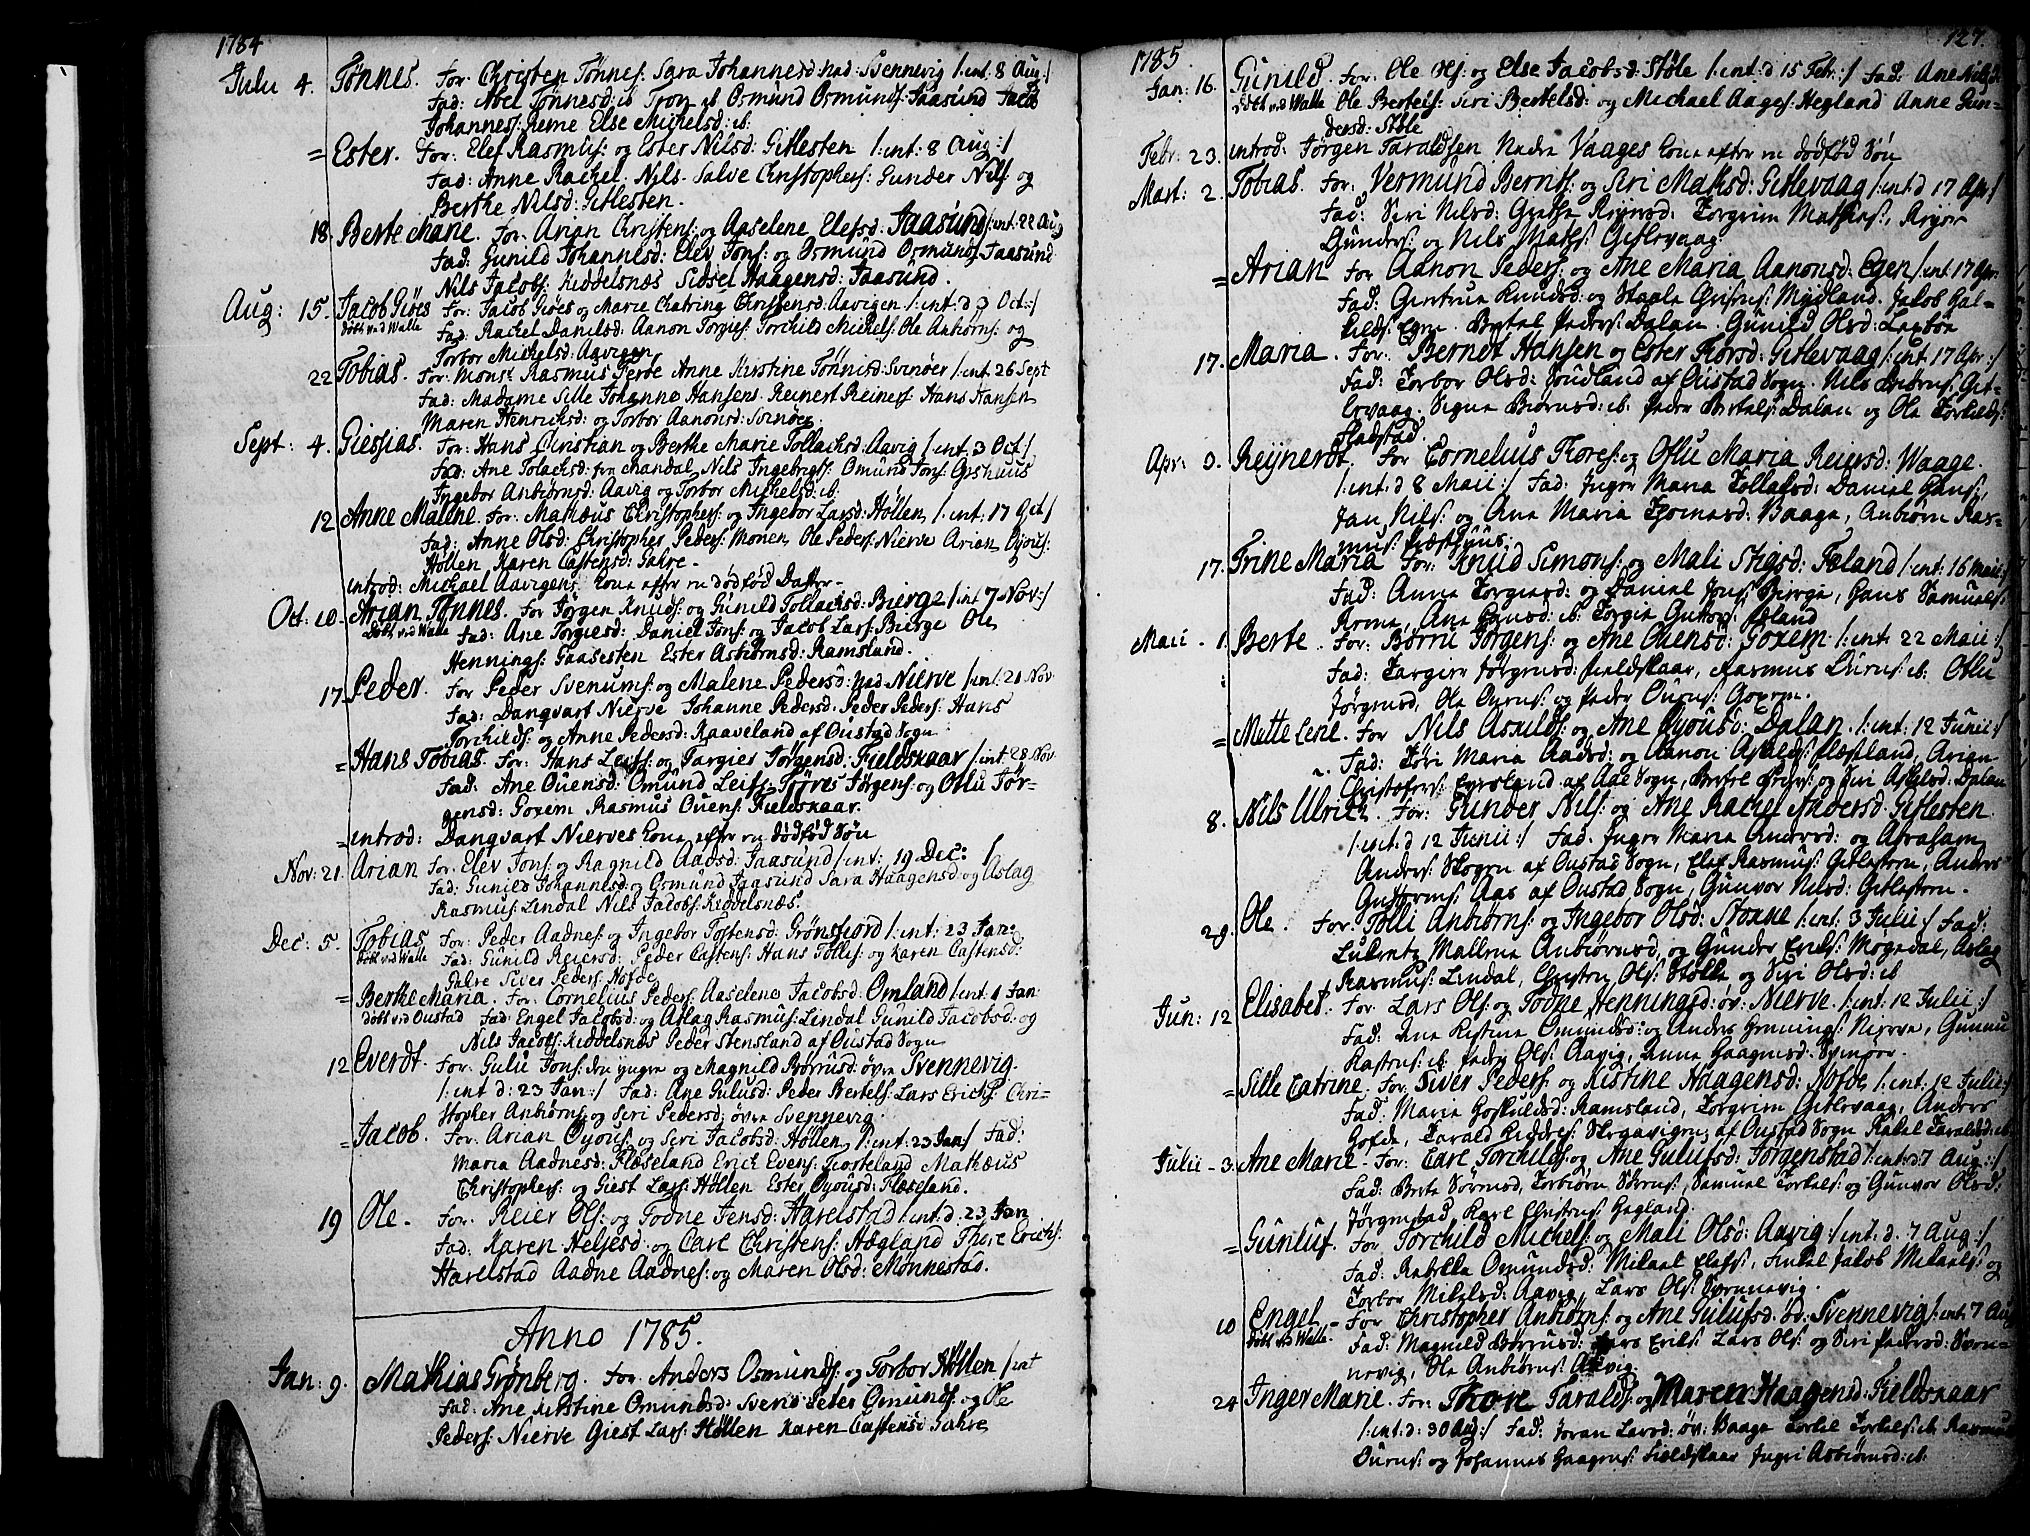 1784
Julii 4. Tønnes. For: Christen Tønnes: Sara Johannesd: Nad: Svennevig /:int: 8 Aug:/
Fad: Abel Tønnesd: ib Tron ib Osmund Osmunds: Jaasund Jacob
Johannes: Reme Else Michelsd: ib:
= Ester. For: Elef Rasmus: og Ester Nilsd: Gitlesten /:int: 8 Aug:/
Fad: Anne Rachel. Nils. Salve Christophers: Gunder Nils: og
Berthe Nilsd: Gitlesten.
18. Berte Marie. For: Arian Christens: og Aaselene Elefsd: Jaasund /:int: 22 Aug
Fad: Gunild Johannesd: Elev Jons: og Osmund Osmunds: Jaasund
Nils Jacobs: Kiddelsnæs Sidsel Haagensd: Jaasund.
Aug: 15. Jacob Giøes For: Jacob Giøes og Marie Chatring Christensd: Aavigen /:int: d 3 Oct:/
døbt ved Walle Fad: Rachel Danilsd: Aanon Torgies: Torchild Michels: Ole Anbiørns: og
Torbor Michelsd: Aavigen
22 Tobias. For: Mons: Rasmus Ferøe Anne Kirstine Tønnisd: Svinøer /:int: 26 Sept
Fad: Madame Sille Johanne Hansens Reinert Reiners: Hans Hansen
Maren Henrichsd: og Torbor Aanonsd: Svinøer
Sept: 4. Giesias. For: Hans Christian og Berthe Marie Tollachsd: Aavig /:int: 3 Oct:/
Fad: Ane Tolachsd: fra Mandal Nils Ingebrigts: Omund Jons: Opshuus
Ingebor Anbiørnsd: Aavig og Torbor Michelsd: ib:
12 Anne Malene. For: Mathæus Christophers: og Ingebor Larsd: Høllen /:int: 17 Oct:/
Fad: Anne Olsd: Christopher Peders: Monen Ole Peders: Nierve Arian Oyous:
Høllen Karen Castensd: Sahre.
introd: Michael Aavigens Kone efter en dødfød Datter.
Oct: 10. Arian Tønnes. For Jørgen Knuds: og Gunild Tollachsd: Bierge /:int 7 Nov:/
døbt ved Walle Fad: Ane Torgiesd: Daniel Jons: og Jacob Lars: Bierge Ole
Hennings: Gaasesten Ester Asbiørnsd: Ramsland.
17. Peder. For Peder Svenums: og Malene Pedersd: Nad Nierve /:int: 21 Nov
Fad: Dangvart Nierve Johanne Pedersd: Peder Peders: Hans
Torchilds: og Anne Pedersd: Raaveland af Oustad Sogn
= Hans Tobias. For: Hans Leifs: og Targier Jørgensd: Fieldskaar /:int: 28 Nov.
Fad: Ane Ouensd: Omund Leifs: Tjøres Jørgens: og Oflu Jør-
gensd: Goxem Rasmus Ouens: Fieldskaar.
= introd: Dangvart Nierves Kone efter en dødfød Søn
Nov: 21. Arian For: Elev Jons: og Ragnild Aadsd: Jaasund /:int: 19 Dec: /
Fad: Gunild Johannesd: og Osmund Jaasund Sara Haagensd og Aslag
Rasmus: Lindal Nils Jacobs: Kiddelsnæs.
Dec: 5. Tobias For: Peder Aadnes: og Ingebor Tostensd: Grønsfiord /:int: 23 Jan:
døbt ved Walle Fad: Gunild Reiersd: Peder Castens: Hans Tollis: og Karen Castensd:
Sahre Siver Peders: Nofde
= Berthe Maria. For: Cornelius Peders: Aaselene Jacobsd: Omland /:int: 1 Jan
døbt ved Oustad Fad: Engel Jacobsd: og Aslag Rasmus: Lindal Gunild Jacobsd: og
Nils Jacobs: Kiddelsnæs Peder Stensland af Oustad Sogn
12 Everdt. For: Gulu Jons: den yngre og Magnild Børrusd: øvre Svennevig.
/:int: d: 23 Jan:/ Fad: Ane Gulusd: Peder Bertels: Lars Erichs: Chri-
stopher Anbiørns: og Seri Pedersd: øvre Svennevig.
= Jacob. For: Arian Oyous: og Seri Jacobsd: Høllen /:int: 23 Jan:/ Fad:
Maria Aadnesd: Flæseland Erich Evens: Fiosteland Mathæus
Christophers: og Giest Lars: Høllen Ester Oyousd: Flæseland.
19 Ole. For: Reier Ols: og Todne Jensd: Harelstad /:int: d: 23 Jan
Fad: Karen Neljesd: og Carl Christens: Hægland Thore Erichs:
Harelstad Aadne Aadnes: og Maren Olsd: Monnestad.
Anno 1785.
Jan: 9. Mathias Grønberg. For: Anders Osmunds: og Torbor Høllen /:int
Fad: Ane Kirstine Omundsd: Svend Peter Omunds: og Ole
Peders: Nierve Giest Lars: Høllen Karen Castensd Sahre
1785. 127.
Jan: 16. Gunild For: Ole Ols: og Else Jacobsd: Støle /:int: d 15 Febr:/ Fad: Ane Nilsd:
døbt ved Walle Ole Bertels: Siri Bertelsd: og Michael Aages: Hegland Anne Gun-
dersd: Støle
Febr: 23. introd: Jørgen Taraldsen Nedre Vaages Kone efter en dødfød Søn
Mart: 2. Tobias. For: Vermund Bernts: og Siri Mathsd: Gitlevaag /:int: d 17 Apr:/
Fad: Siri Nilsd: Grethe Reyersd: Torgrim Mathias: Reyer
Gunders: og Nils Maths: Gitlevaag.
= Arian For Aanon Peders: og Ane Maria Aanonsd: Egen /:int: 17 Apr:
Fad: Gertrue Knudsd: og Staale Mydland. Jacob Sal-
Egen. Bertel Peders: Dalan. Gunild Olsd:
17. Maria. For: Bernet Hansen og Ester Toresd: Gitlevaag /:int: 17 Apr:/
Fad: Torbor Olsd: Jordland af Oustad Sogn. Nils Biørns: Git-
levaag. Signe Biørnsd: ib. Peder Bertels: Dalan og Ole Torkelds:
Fladstad.
Apr: 3. Reijnerdt. For Cornelius Thores: og Oflu Maria Reiersd: Waage.
/:int: d 8 Maii:/ Fad: Inger Maria Tollefsd: Daniel Hans:
Jan Nils: og Ane Maria Baage, Anbiørn Ras-
mus:
17. Trine Maria For: Knud Simons: og Mali Stigsd: Foeland /:int: 16 Maii:/
Fad: Anna Torgiesd: og Daniel Jons: Bierge, Hans Samuels:
Rome, Ane ib: Torgie
Maii - 1. Berte. For: Børru Jørgens: og Ane Ouensd: Goxem /:int: 22 Maii:/
Fad: Targier Jørgensd: Fieldskaar, Rasmus Ouens: ib. Oflu
Jørgensd, Ole Ouens: og Peder Ouens: Goxem.
= Mette Cecil. For Nils Askilds: og Ane Oyousd: Dalan. /:int: 12 Junii:/
Fad: Siri Maria Aadsd: og Aanon Flæstland, Arian
Christofers: Eversland af Aae Sogn, Bertel og Siri Dalan
8. Nils Ulrich. For: Gunder Nils: og Ane Rachel Andersd: Gitlesten
/:int: d 12 Junii:/ Fad: Inger Maria Andersd: og Abraham
Anders: Skogen af Oustad Sogn, Elef Rasmus: Gitlesten, Anders
Guttorms: Aas af Oustad Sogn, Gunvor Nilsd: Gitlesten.
29. Ole. For: Tolli Anbiørns: og Ingebor Olsd: Stonne /:int: 3 Julii:/ Fad:
Mallene Anbiørnsd: og Gunder Eriks: Møgedal, Aslag
Rasmus: Lindal, Christen Ols: Stølle og Siri Olsd: ib
Jun: 12 Elisabet. For: Lars Ols: og Todne Henningsd: øv: Nierve. /:int: 12 Julii:/
Fad: Ane Kistine Omundsd: og Anders Hennings: Nierve, Gunnu
ib. Peder Ols: Aavig, Anna Haagensd: Svinøer.
= Sille Catrine. For: Siver Peders: og Kistine Haagensd: Nofde /:int: 12 Julii:/
Fad: Maria Goskuldsd: Ramsland, Torgrim Gitlevaag, Anders
Tarald af Oustad Sogn Rakel Taraldsd: ib
Julii - 3. Ane Marie. For: Carl Torchilds: og Ane Gulufsd: Jørgenstad /:int: d 7 Aug:/
Fad: Berte Sørensd, Torbiørn Sørens, Samuel Torkels: og Gunvor Olsd:
Jørgenstad, Karl Christens: Hegland.
= Gunluf. For Torchild Michels: og Mali Olsd: Aavig /:int: d. 7 Aug:/
Fad: Rebekka Omundsd: Mikael Elefs:, Jakob Mikaels: og
Torbor Mikelsd: Aavig, Lars Ols: Svennevig.
10 Engel. For Christopher Anbiørns: og Ane Gulufsd: øv: Svennevig /:int: 7 Aug
døbt ved Walle. Fad: Magnild Børrusd: Lars Eriks: Lars Ols: og Siri Pedersd: Sven-
nevig, Ole Anbiørns: Aavig.
24 Inger Marie. For: Thore Taralds: og Maren Haagensd: Fieldskaar
/:int: d: 30 Aug:/ Fad: Joran Larsd: øv: Vaage Torkel Torkels: ib. Rasmus
Ouens: og Johannes Haagens: Fieldskaar Ingri Asbiørnsd: ib.